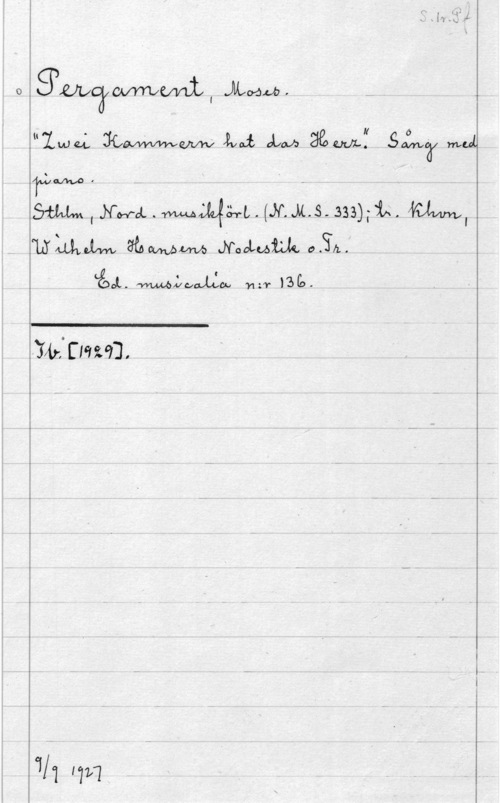 S. tr. Pf
Pergament, Moses.
"Zwei Kammern hat das Herz." Sång med
piano.
Sthlm, Nord. musikförl. (N. M. S. 333); tr. Khvn,
Wilhelm Hansens Nodestik o. Tr.
Ed. musicalia n:r 136.
Ib. [1929].
9/9 1927